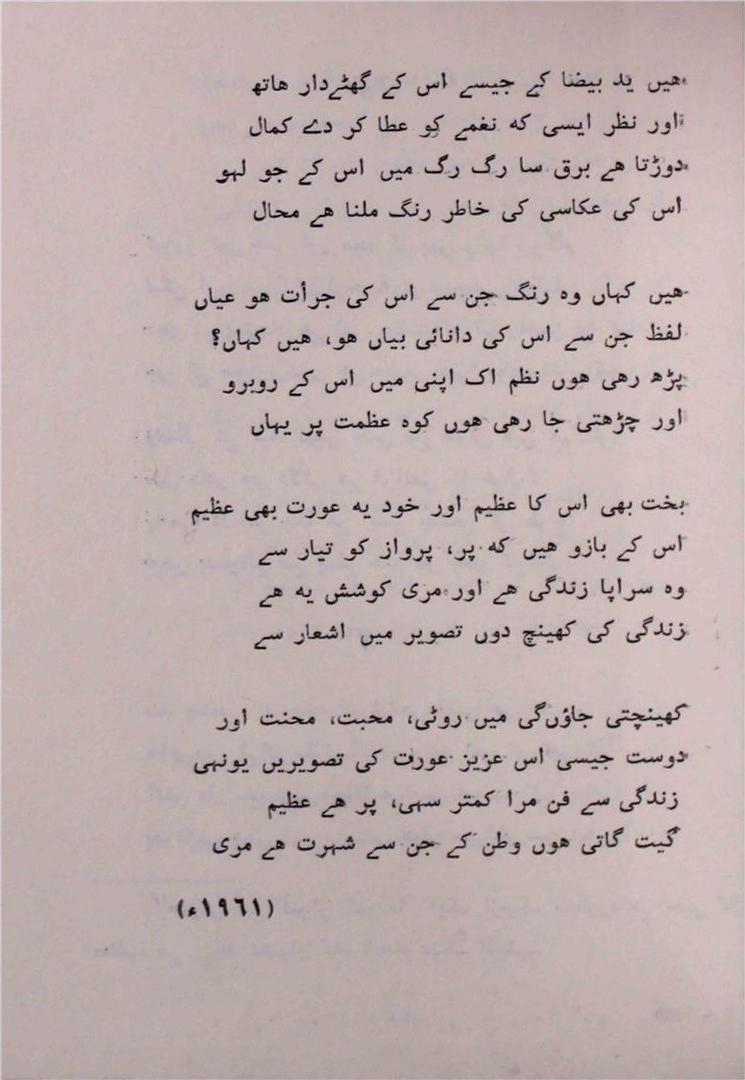 هیں ید بیضا کے جیسے اس کے گھٹےدار هاتھ
اور نظر ایسی که نغمے کو عطا کر دے کمال
دوڑتا هے برق سا رگ رگ میں اس کے جو لہو
اس کی عکاسی کی خاطر رنگ ملنا هے محال
هیں کہاں وه رنگ جن سے اس کی جرأت هو عیاں
لفظ جن سے اس کی دانائی بیاں هو، هیں کہاں؟
پڑھ رهی هوں نظم اک اپنی میں اس کے روبرو
اور چڑھتی جا رهی هوں کوه عظمت پر یہاں
بخت بھی اس کا عظیم اور خود یه عورت بھی عظیم
اس کے بازو هیں که پر، پرواز کو تیار سے
وه سراپا زندگی هے اور مری کوشش یه هے
زندگی کی کھینچ دوں تصویر میں اشعار سے
کھینچتی جاؤں‌گی میں روٹی، محبت، محنت اور
دوست جیسی اس عزیز عورت کی تصویریں یونہی
زندگی سے فن مرا کمتر سہی، پر هے عظیم
گیت گاتی هوں وطن کے جن سے شہرت هے مری
(۱۹٦۱ء)